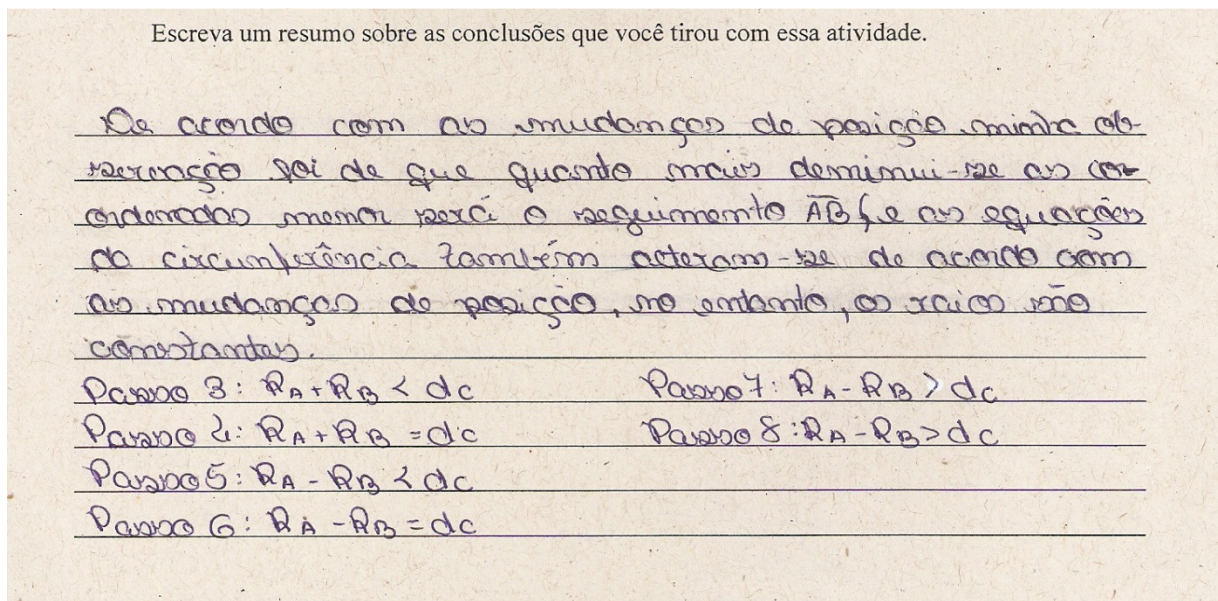 Escreva um resumo sobre as conclusões que você tirou com essa atividade.
De acordo com as mudanças de posição minha ob-
servação foi de que quanto mais deminui-se as co-
ordenadas menor será o seguimento AB, e as equações
da circunferência também alteram-se de acordo com
as mudanças de posição, no entanto, os raios são
constantes.
Passo 3: RA + RB < dc Passo 7: RA - RB > dc
Passo 4: RA + RB = dc Passo 8: RA - RB > dc
Passo 5: RA - RB < dc
Passo 6: RA - RB = dc